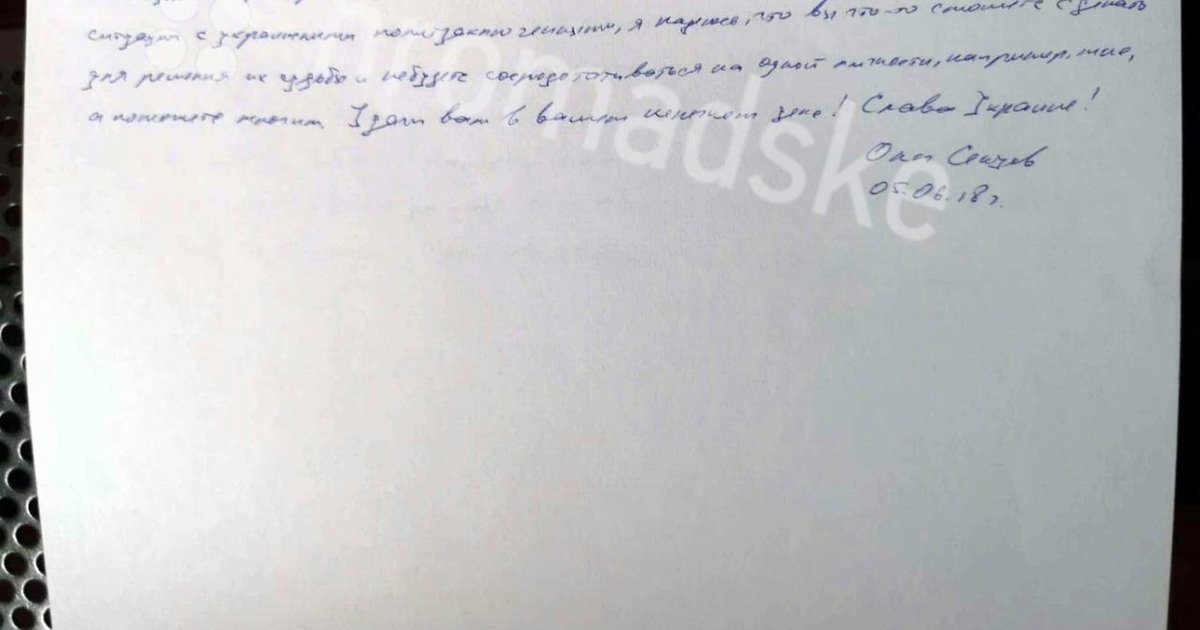 ситуации с украинскими политзаключенными, я надеюсь, что вы что-то сможете сделать
для решения их судьбы и небудете сосредотачиваться на одной личности, например, мне,
а поможете многим. Удачи вам в вашем цене! Слава Украине!
Олег Сенцов
05.06.18 г.
hromadske